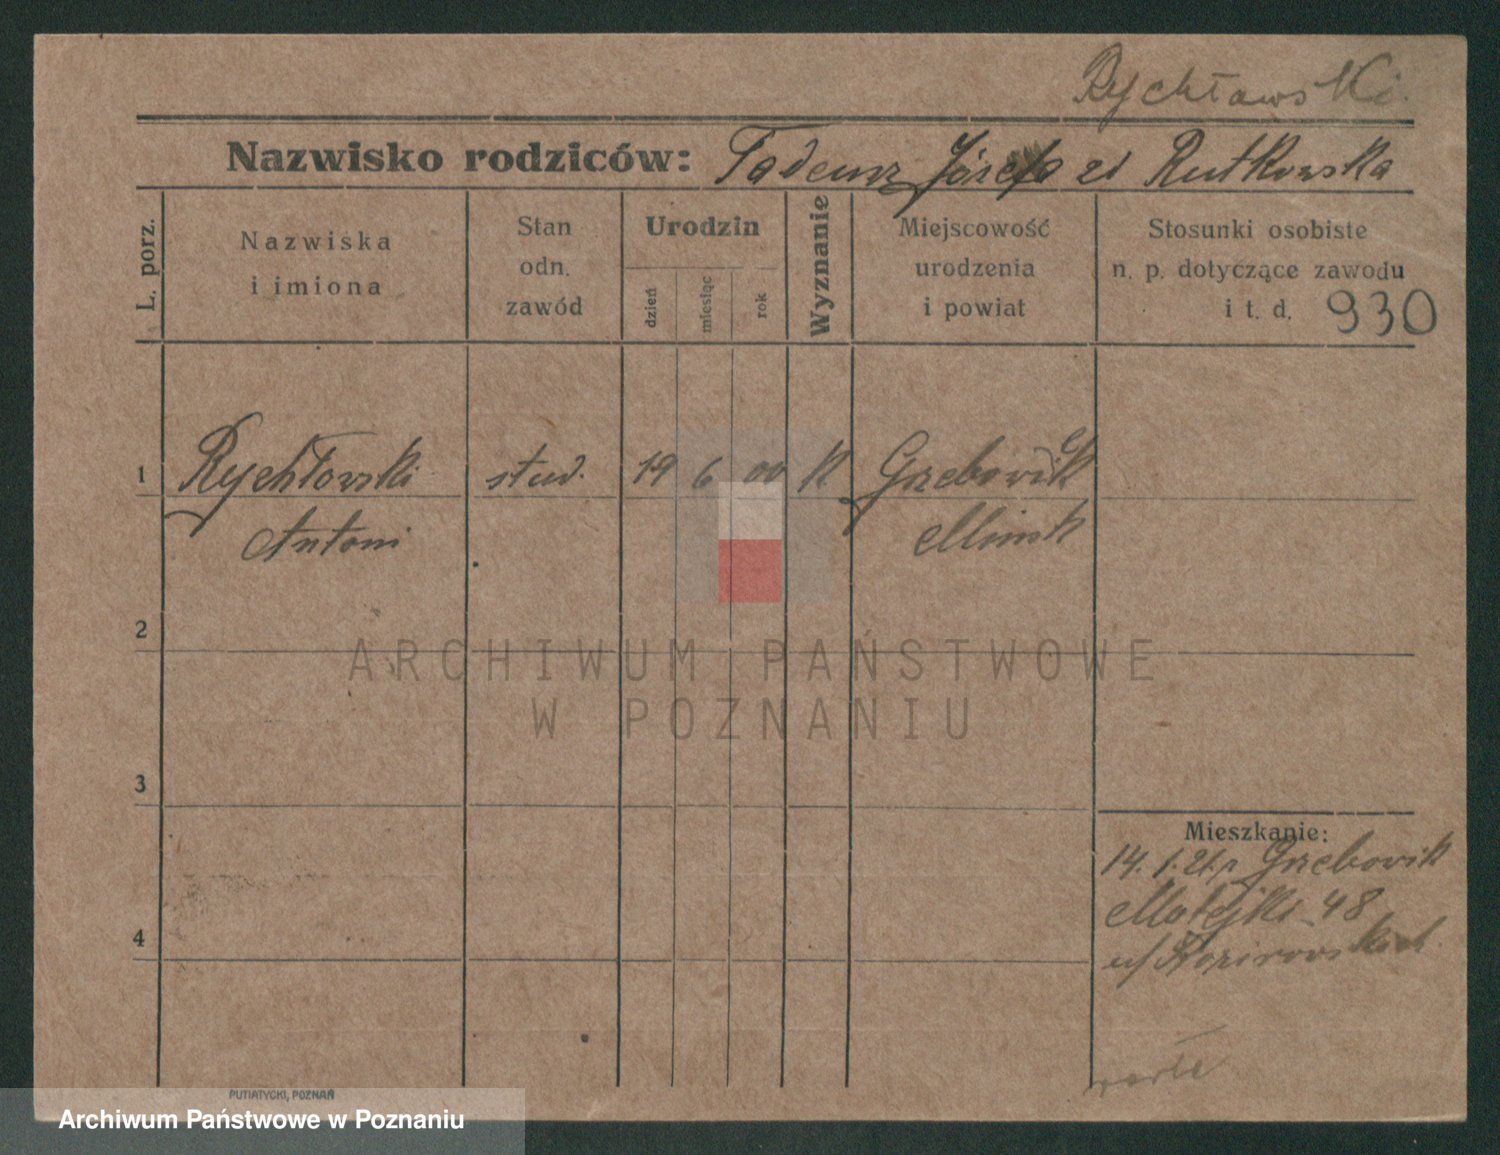 Rychławski.
Nazwisko rodziców: Tadeusz Józefa zd Rutkowska
L. porz.
Nazwiska
i imiona
Stan
odn.
zawód
Urodzin
dzień
miesiąc
rok
Wyznanie
Miejscowość
urodzenia
i powiat
Stosunki osobiste
n. p. dotyczące zawodu
i t. d. 930
1 Rychłowski stud. 19 6 00 K Grebowik
Antoni Minsk
2
ARCHIWUM PAŃSTWOWE
W POZNANIU
3
Mieszkanie:
14. 1. 21. Grebowik
Matejki 48
4
PUTIATYCKI, POZNAŃ
Archiwum Państwowe w Poznaniu